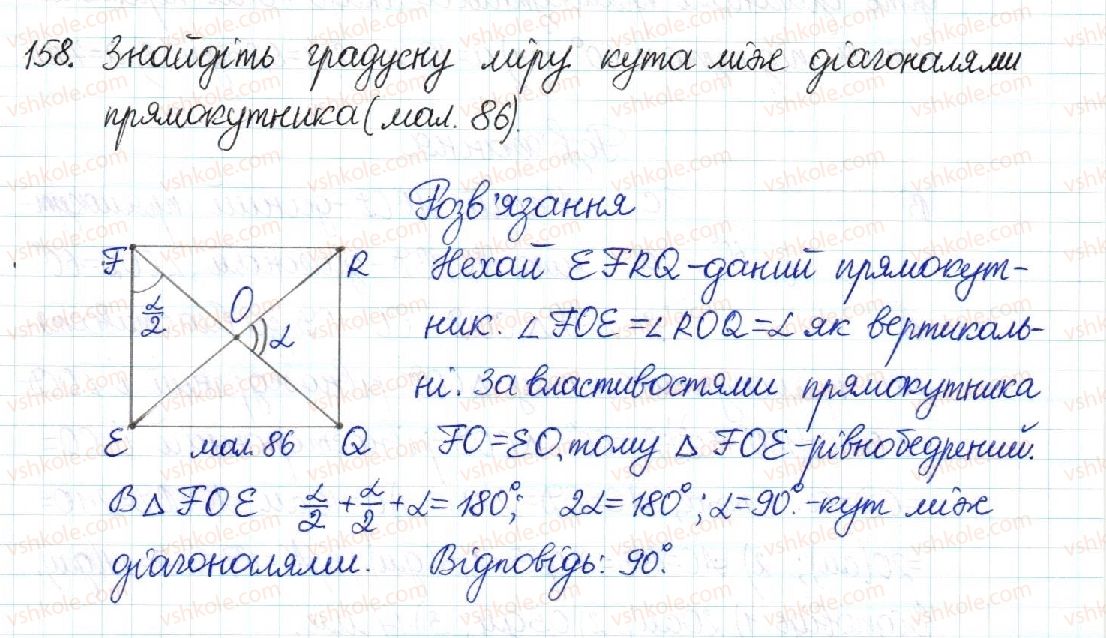 158. Знайдіть градусну міру кута між діагоналями
прямокутника (мал. 86).
Розв'язання
F R O α/2 α E мал. 86 Q
Нехай EFRQ - даний прямокут-
ник. ∠FOE = ∠ROQ = α як вертикаль-
ні. За властивостями прямокутника
FO = EO, тому △ FOE - рівнобедрений.
В △ FOE α/2 + α/2 + α = 180°; 2α = 180°; α = 90°. - кут між
діагоналями. Відповідь: 90°.
vshkole.com